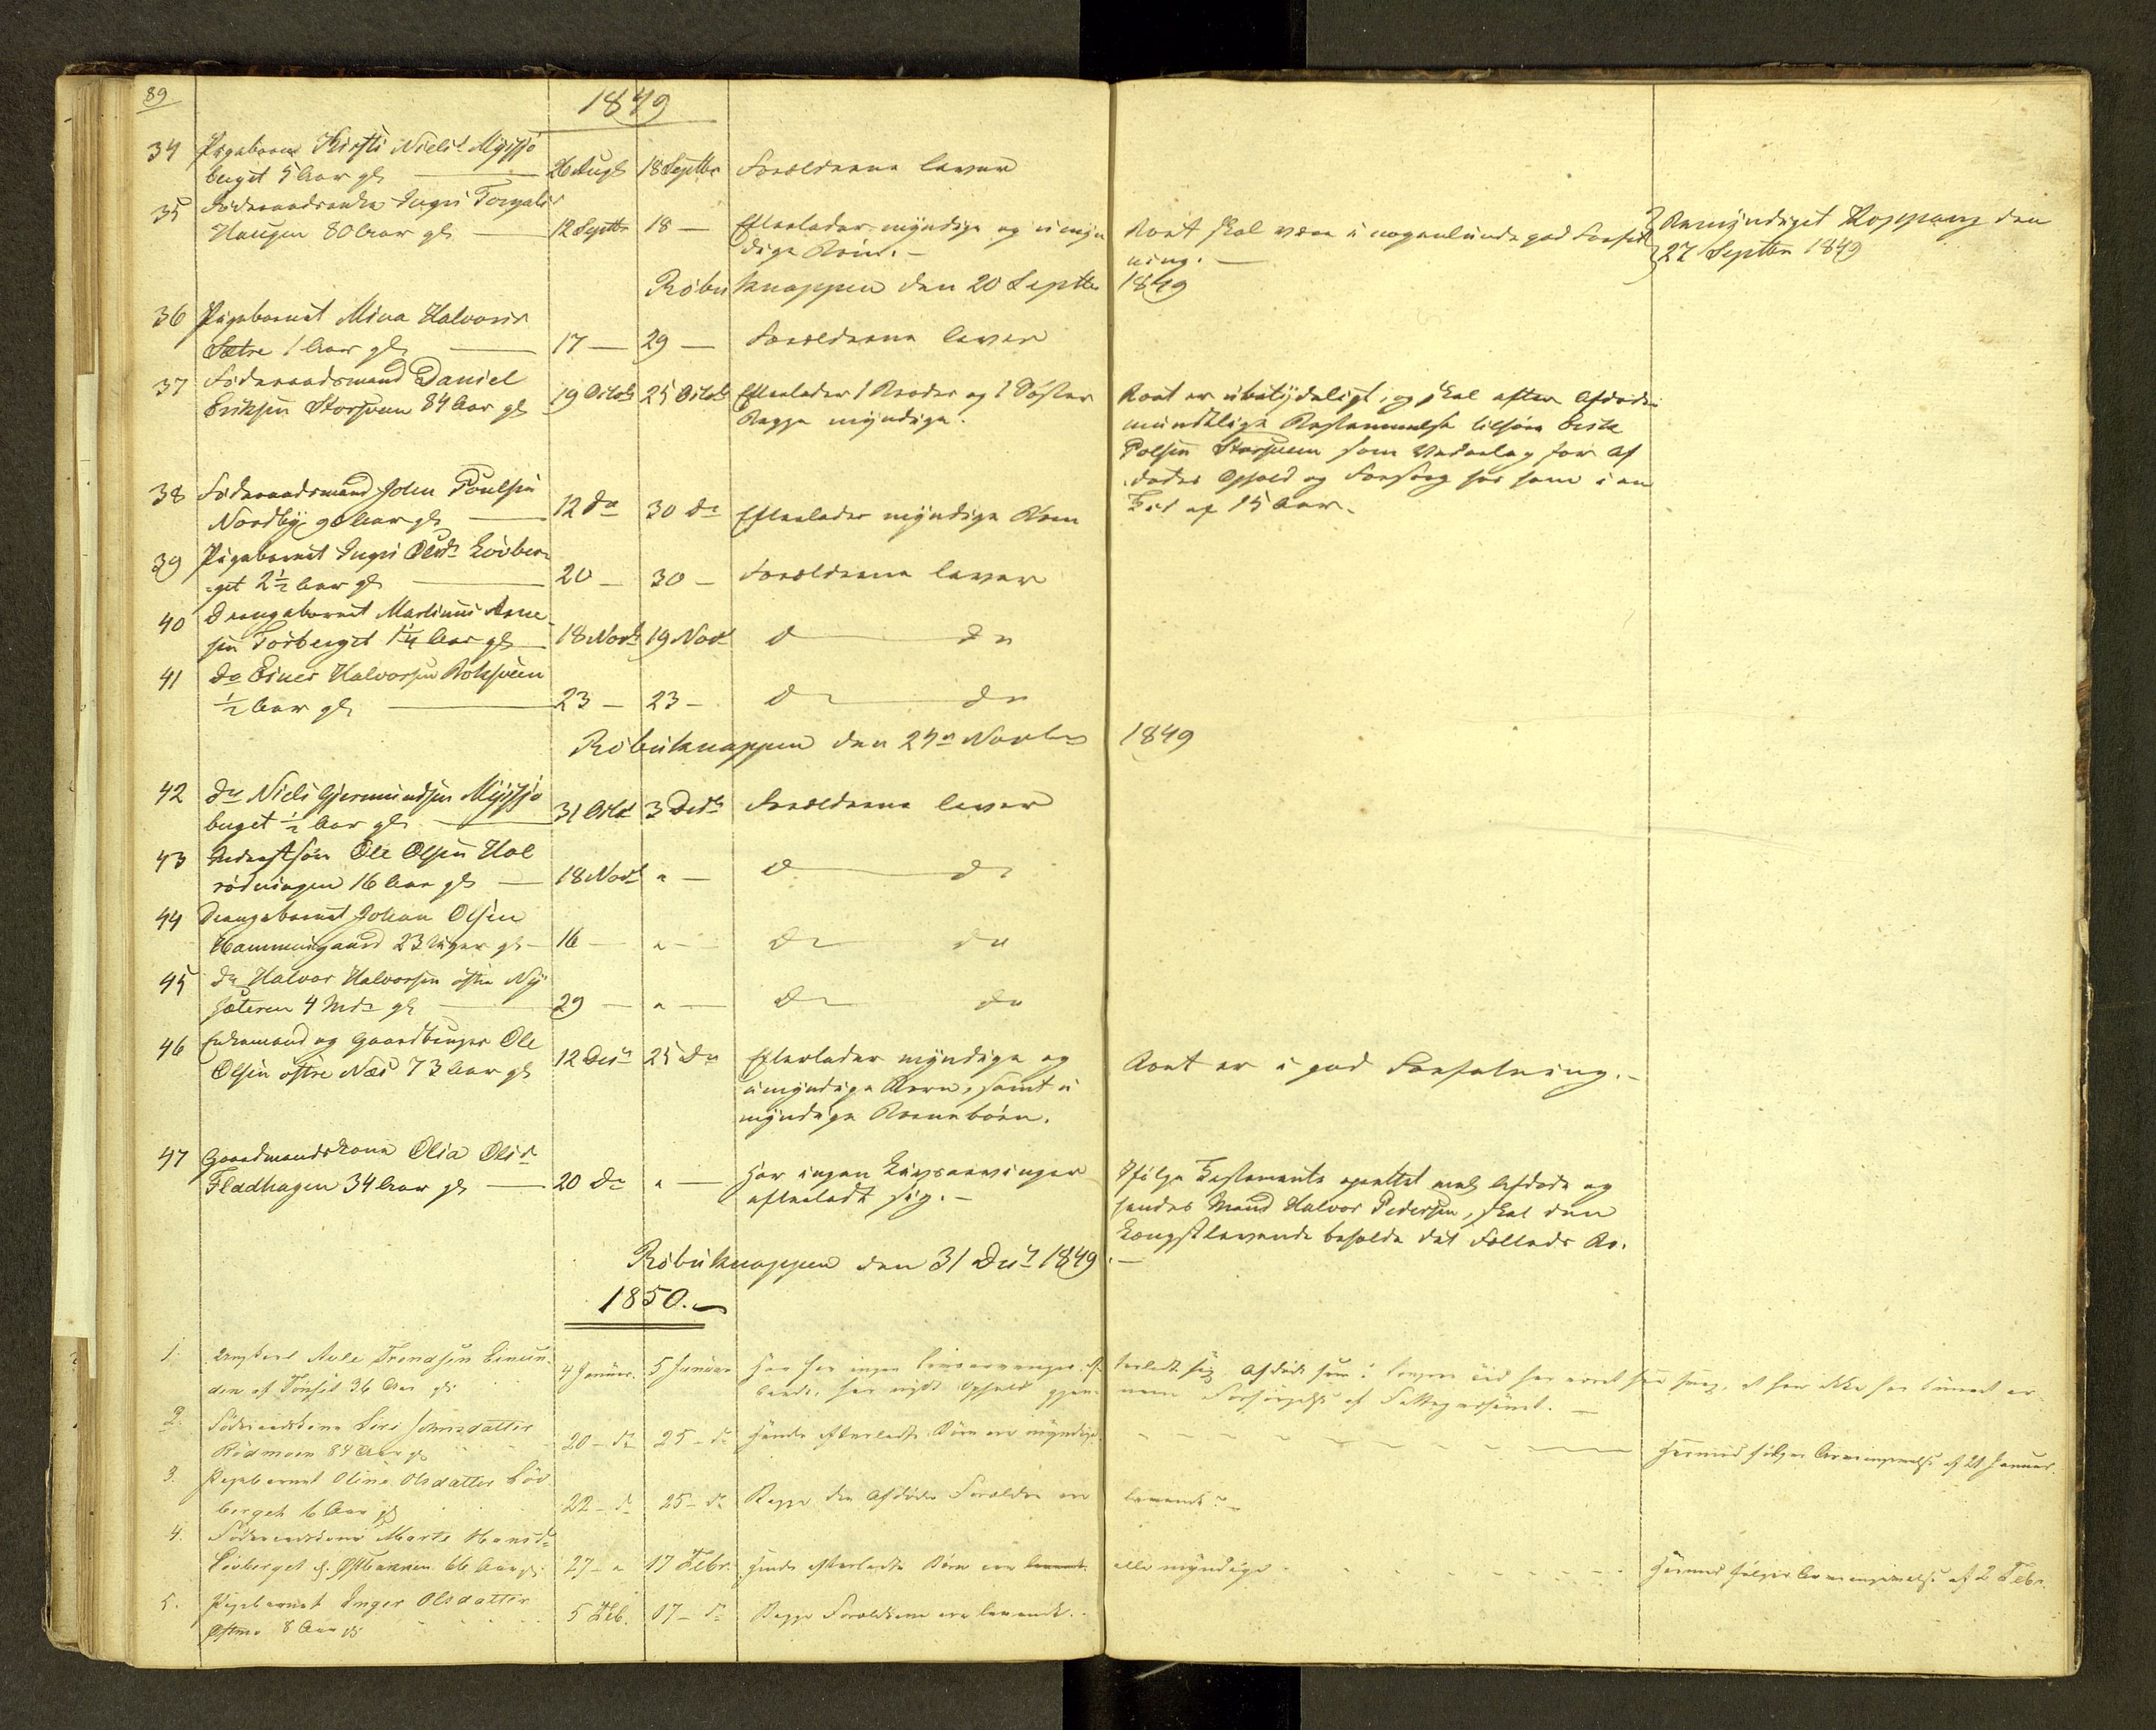 89
1849
34 Pigebarn Kirsti Nielsd Myssjø
berget 5 Aar gl 26 Augt 18 Septbr Forældrene lever
35 Føderaadsenke Ingri
Haugen 80 Aar gl 12 Septbr 18 — Efterlader myndige og umyn
dige Børn. —
Boet skal være i nogenlunde god Forfat
ning. —
Bemyndiget Koppang den
27 Septbr 1849
Røbuknappen den 20 Septbr 1849
36 Pigebarnet Mina Halvorsd
Sætre 1 Aar gl 17 — 29 — Forældrene lever
37 Føderaadsmand Daniel
Eriksen Storsveen 84 Aar gl 19 Octob 25 Octob Efterlader 1 Broder og 1 Søster
Begge myndige.
Boet er ubetydeligt, og skal efter Afdødes
mundtlige Bestemmelse tilføre
Polsen Storsveen som Vederlag for Af
dødes Ophold og Forsørg hos ham i en
Tid af 15 Aar.
38 Føderaadsmand John Poulsen
Nordby 90 Aar gl 12 do 30 do Efterlader myndige Børn
39 Pigebarnet Ingri Olsdr Løvber
get 2½ Aar gl 20 — 30 — Forældrene lever
40 Drengebarnet Martinus Arne
sen Torberget 1¼ Aar gl 18 Novb 19 Novb do do
41 do Einer Halvorsen Boksveen
½ Aar gl 23 — 23 — do do
Røbuknappen den 24de Novbr 1849
42 do Niels Gjermundsen Myssjø
berget ½ Aar gl 31 Octb 3 Decbr Forældrene lever
43 Inderstsøn Ole Olsen Hol
rødningen 16 Aar gl 18 Novb " — do do
44 Drengebarnet Johan Olsen
Hammersgaard 23 Uger gl 16 — " — do do
45 do Halvor Halvorsen østre Ny
sæteren 4 Mdr gl 29 — " — do do
46 Enkemand og Gaardbruger Ole
Olsen østre Næs 73 Aar gl 12 Decbr 25 do Efterlader myndige og
umyndige Børn, samt u
myndige Børnebørn.
Boet er i god Forfatning. —
47 Gaardmandskone Olia Olsdr
Fladhagen 34 Aar gl 20 do " — Har ingen Livsarvinger
efterladt sig. —
Ifølge Testamente oprettet mel. Afdøde og
hendes Mand Halvor Pedersen, skal den
Længstlevende beholde det Fælleds Bo.
Røbuknappen den 31 Decbr 1849. —
1850. —
1. Trondsen
af Tønset 36 Aar gl. 4 Januar. 5 Januar Han har ingen Livsarvinger ef
terladt sig. Afdøde
Forsørgelse af Fattigvæsenet. —
2. Føderaadskone Siri Johnsdatter
Rødmoen 84 Aar gl 20 – do 25 – do Hendes efterladte Børn ere myndige.
Hermed følger af 21 Januar.
3. Pigebarnet Oline Olsdatter Løv
berget 6 Aar gl 22 – do 25 – do Begge den Afdødes Forældre ere levende. —
4. Føderaadskone Marte Hansdr
Løvberget 66 Aar gl. 27 – " 17 Febr. Hendes efterladte Børn ere alle myndige
Hermed følger af 2 Febr.
5. Pigebarnet Inger Olsdatter
8 Aar gl 5 Feb. 17 – do Begge Forældrene ere levende.